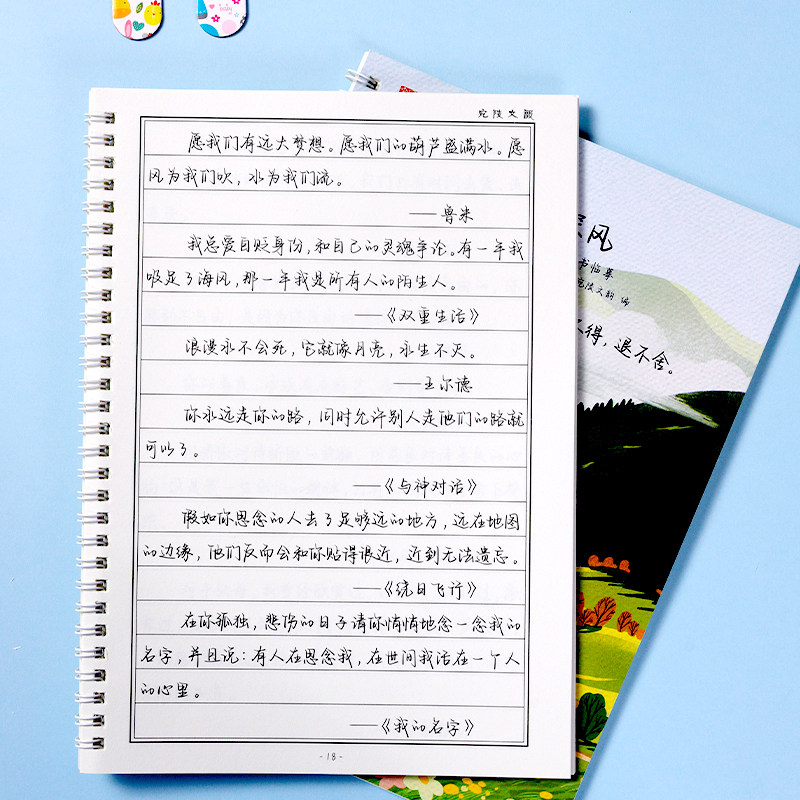 宛陵文韻
愿我们有远大梦想。愿我们的葫芦盛满水。愿
风为我们吹，水为我们流。
——鲁米
我总爱自贬身份，和自己的灵魂争论。有一年我
吸足了海风，那一年我是所有人的陌生人。
——《双重生活》
浪漫永不会死，它就像月亮，永生不灭。
——王尔德
你永远走你的路，同时允许别人走他们的路就
可以了。
——《与神对话》
假如你思念的人去了足够远的地方，远在地图
的边缘，他们反而会和你贴得很近，近到无法遗忘。
——《绕日飞行》
在你孤独，悲伤的日子请你悄悄地念一念我的
名字，并且说：有人在思念我，在世间我活在一个人
的心里。
——《我的名字》
-18-
风
书临摹
宛陵文韵 编
得，退不舍。
baby